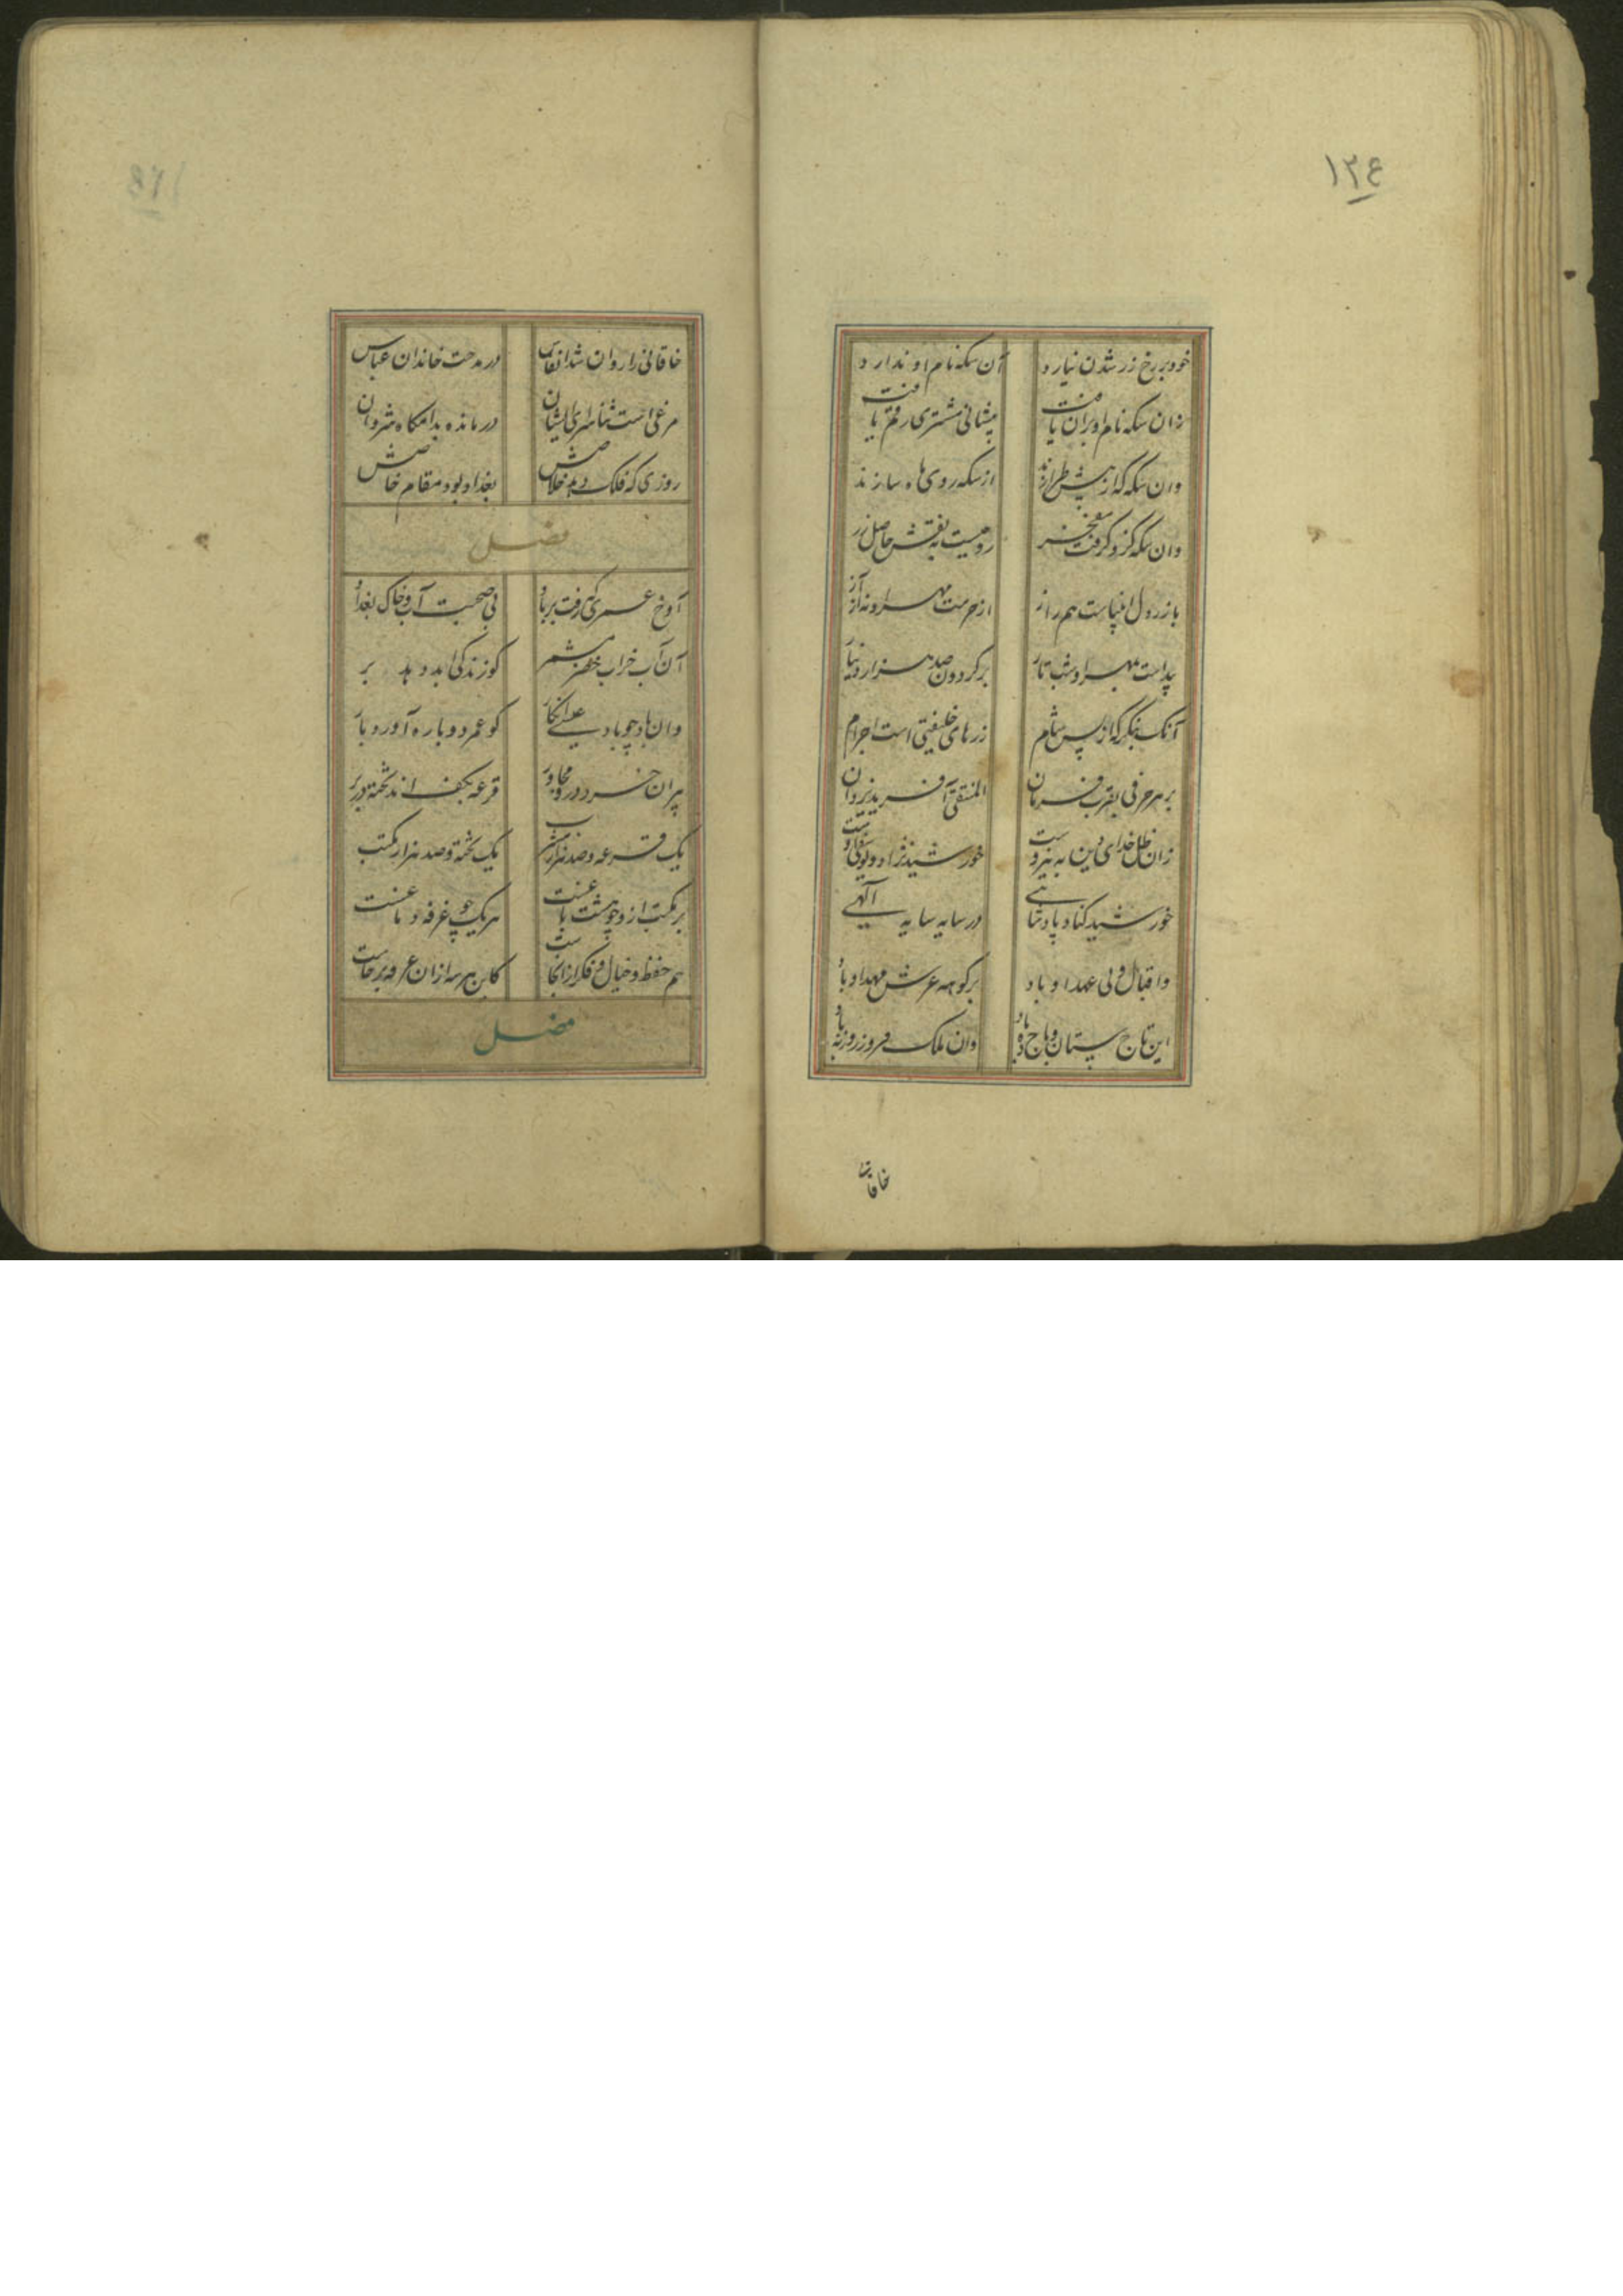 ۱۲۴
خود بر رخ زر شدن نیارد آن سکه نام او ندارد
زان سکه نام او بران یافت پیشانی مشتری رقم یافت
وان سکه که از پیش طرازند از سکه روی ماه سازند
وان سکه کزو گرفت مفخر رومیست بنقش حاصل زر
با زر دل انبیاست هم راز از حرمت مهر او نه از آز
پیداست بمهر او شب تار بر گردون صد هزار دینار
آنک بنگر که از پس شام زرهای خلیفتی است اجرام
بر هر حرفی بقرب فرمان المتقی آفرید یزدان
زان ظل خدای دین به نیروست خورشید نژاد و
خورشید کناد پادشاهی در سایه سایه آلهی
واقبال ولی عهد او باد بر کوهه عرش مهد او باد
این تاج ستان و باج ده باد وان ملک فروز روز به باد
خاقانی
خاقانی را روان شد انفاس در مدحت خاندان عباس
مرغی است ثنا سرای ایشان درمانده بدامگاه شروان
روزی که فلک دهد خلاصش بغداد بود مقام خاصش
فصل
آوخ عمری که رفت بر باد بی صحبت آب و خاک بغداد
آن آب خراب خضر مشمر کو زندگی ابد دهد بر
وان باد چو باد عیسی انگار کو عمر دوباره آورد بار
پیران خرد درو مجاور قرعه بکف اند تخته در بر
یک قرعه و صد هزار مشرب یک تخته و صد هزار مکتب
بر مکتب ازو چو هشت باغست هر یک چو غرفه دماغست
هم حفظ و خیال و فکر ازانجاست کاین هر سه ازان غرفه برخاست
فصل